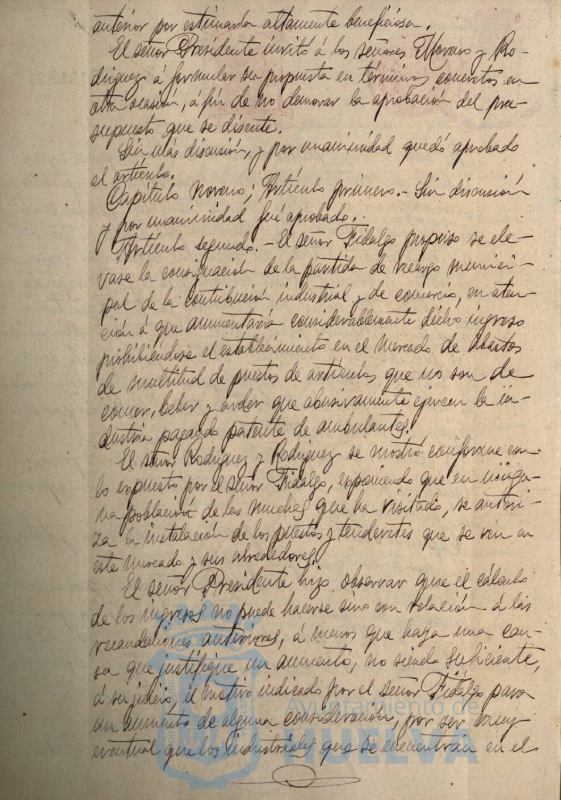 anterior por estimarla altamente beneficiosa.
El señor Presidente invitó á los señores Moreno y Ro-
driguez á formular su propuesta en términos concretos en
otra ocasión, á fin de no demorar la aprobación del pre-
supuesto que se discute.
Sin más discusión y por unanimidad quedó aprobado
el artículo.
Capítulo noveno; Artículo primero.- Sin discusión
y por unanimidad fué aprobado.
Artículo segundo.- El señor Fidalgo propuso se ele-
vase la consignación de la partida de recargo munici-
pal de la contribución industrial y de comercio, en aten-
ción á que aumentaría considerablemente dicho ingreso
prohibiéndose el establecimiento en el mercado de abastos
de multitud de puestos de artículos que no son de
comer, beber y arder que abusivamente ejercen la in-
dustria pagando patente de ambulantes.
El señor Rodriguez y Rodriguez se mostró conforme con
lo expuesto por el señor Fidalgo, exponiendo que en ningu-
na población de las muchas que ha visitado, se autori-
za la instalación de los puestos y tenderetes que se ven en
este mercado y sus alrededores.
El señor Presidente hizo observar que el cálculo
de los ingresos no puede hacerse sino con relación á las
recaudaciones anteriores, á menos que haya una cau-
sa que justifique un aumento, no siendo suficiente,
á su juicio, el motivo indicado por el señor Fidalgo para
un aumento de alguna consideración, por ser muy
eventual que los industriales que se encuentran en el
Ayuntamiento de
HUELVA